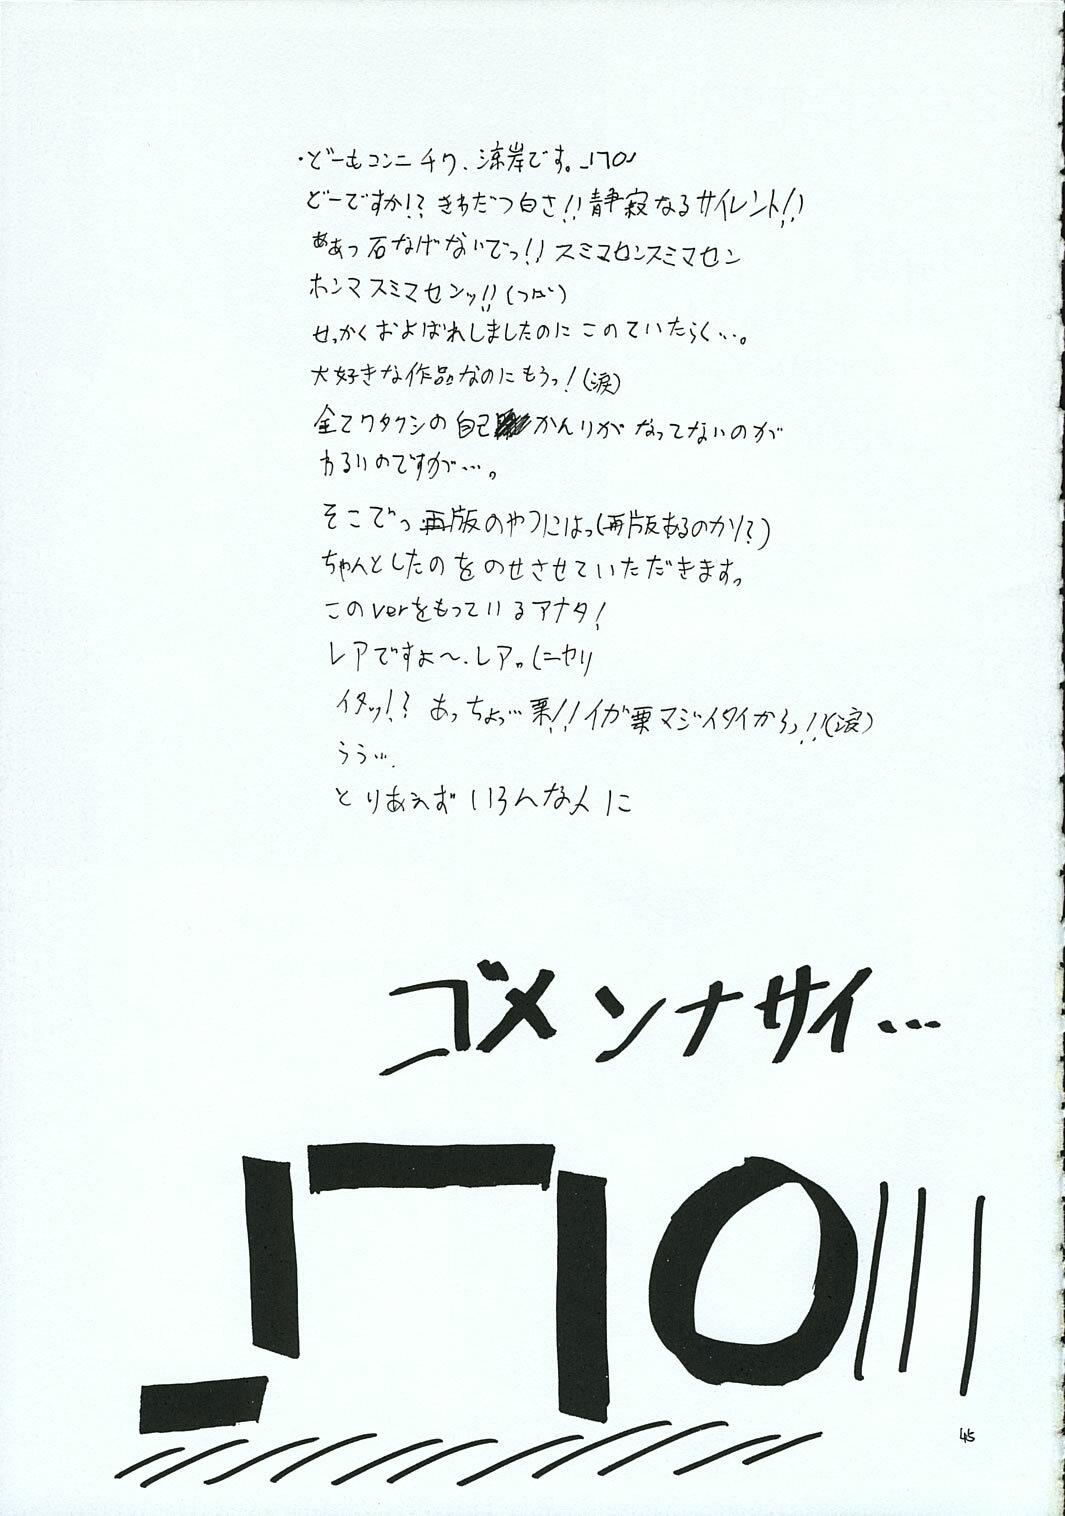 ・どーもコンニチワ、涼岸です。_| ̄|○
どーですか!? きわだつ白さ!! 静寂なるサイレント!!
ああっ石なげないでっ!! スミマセンスミマセン
ホンマスミマセンッ!!(つдい)
せっかくおよばれしましたのにこのていたらく…。
大好きな作品なのにもうっ!(涙)
全てワタクシの自己かんりがなってないのが
わるいのですが…。
そこでっ再版のやつにはっ(再版あるのカソ?)
ちゃんとしたのをのせさせていただきます。
このverをもっているアナタ!
レアですよ〜。レア。(ニヤリ
イタッ!? あっちょっ…栗!! イガ栗マジイタイからっ!!(涙)
うう…。
とりあえずいろんな人に
ゴメンナサイ…
_| ̄|○|||
45